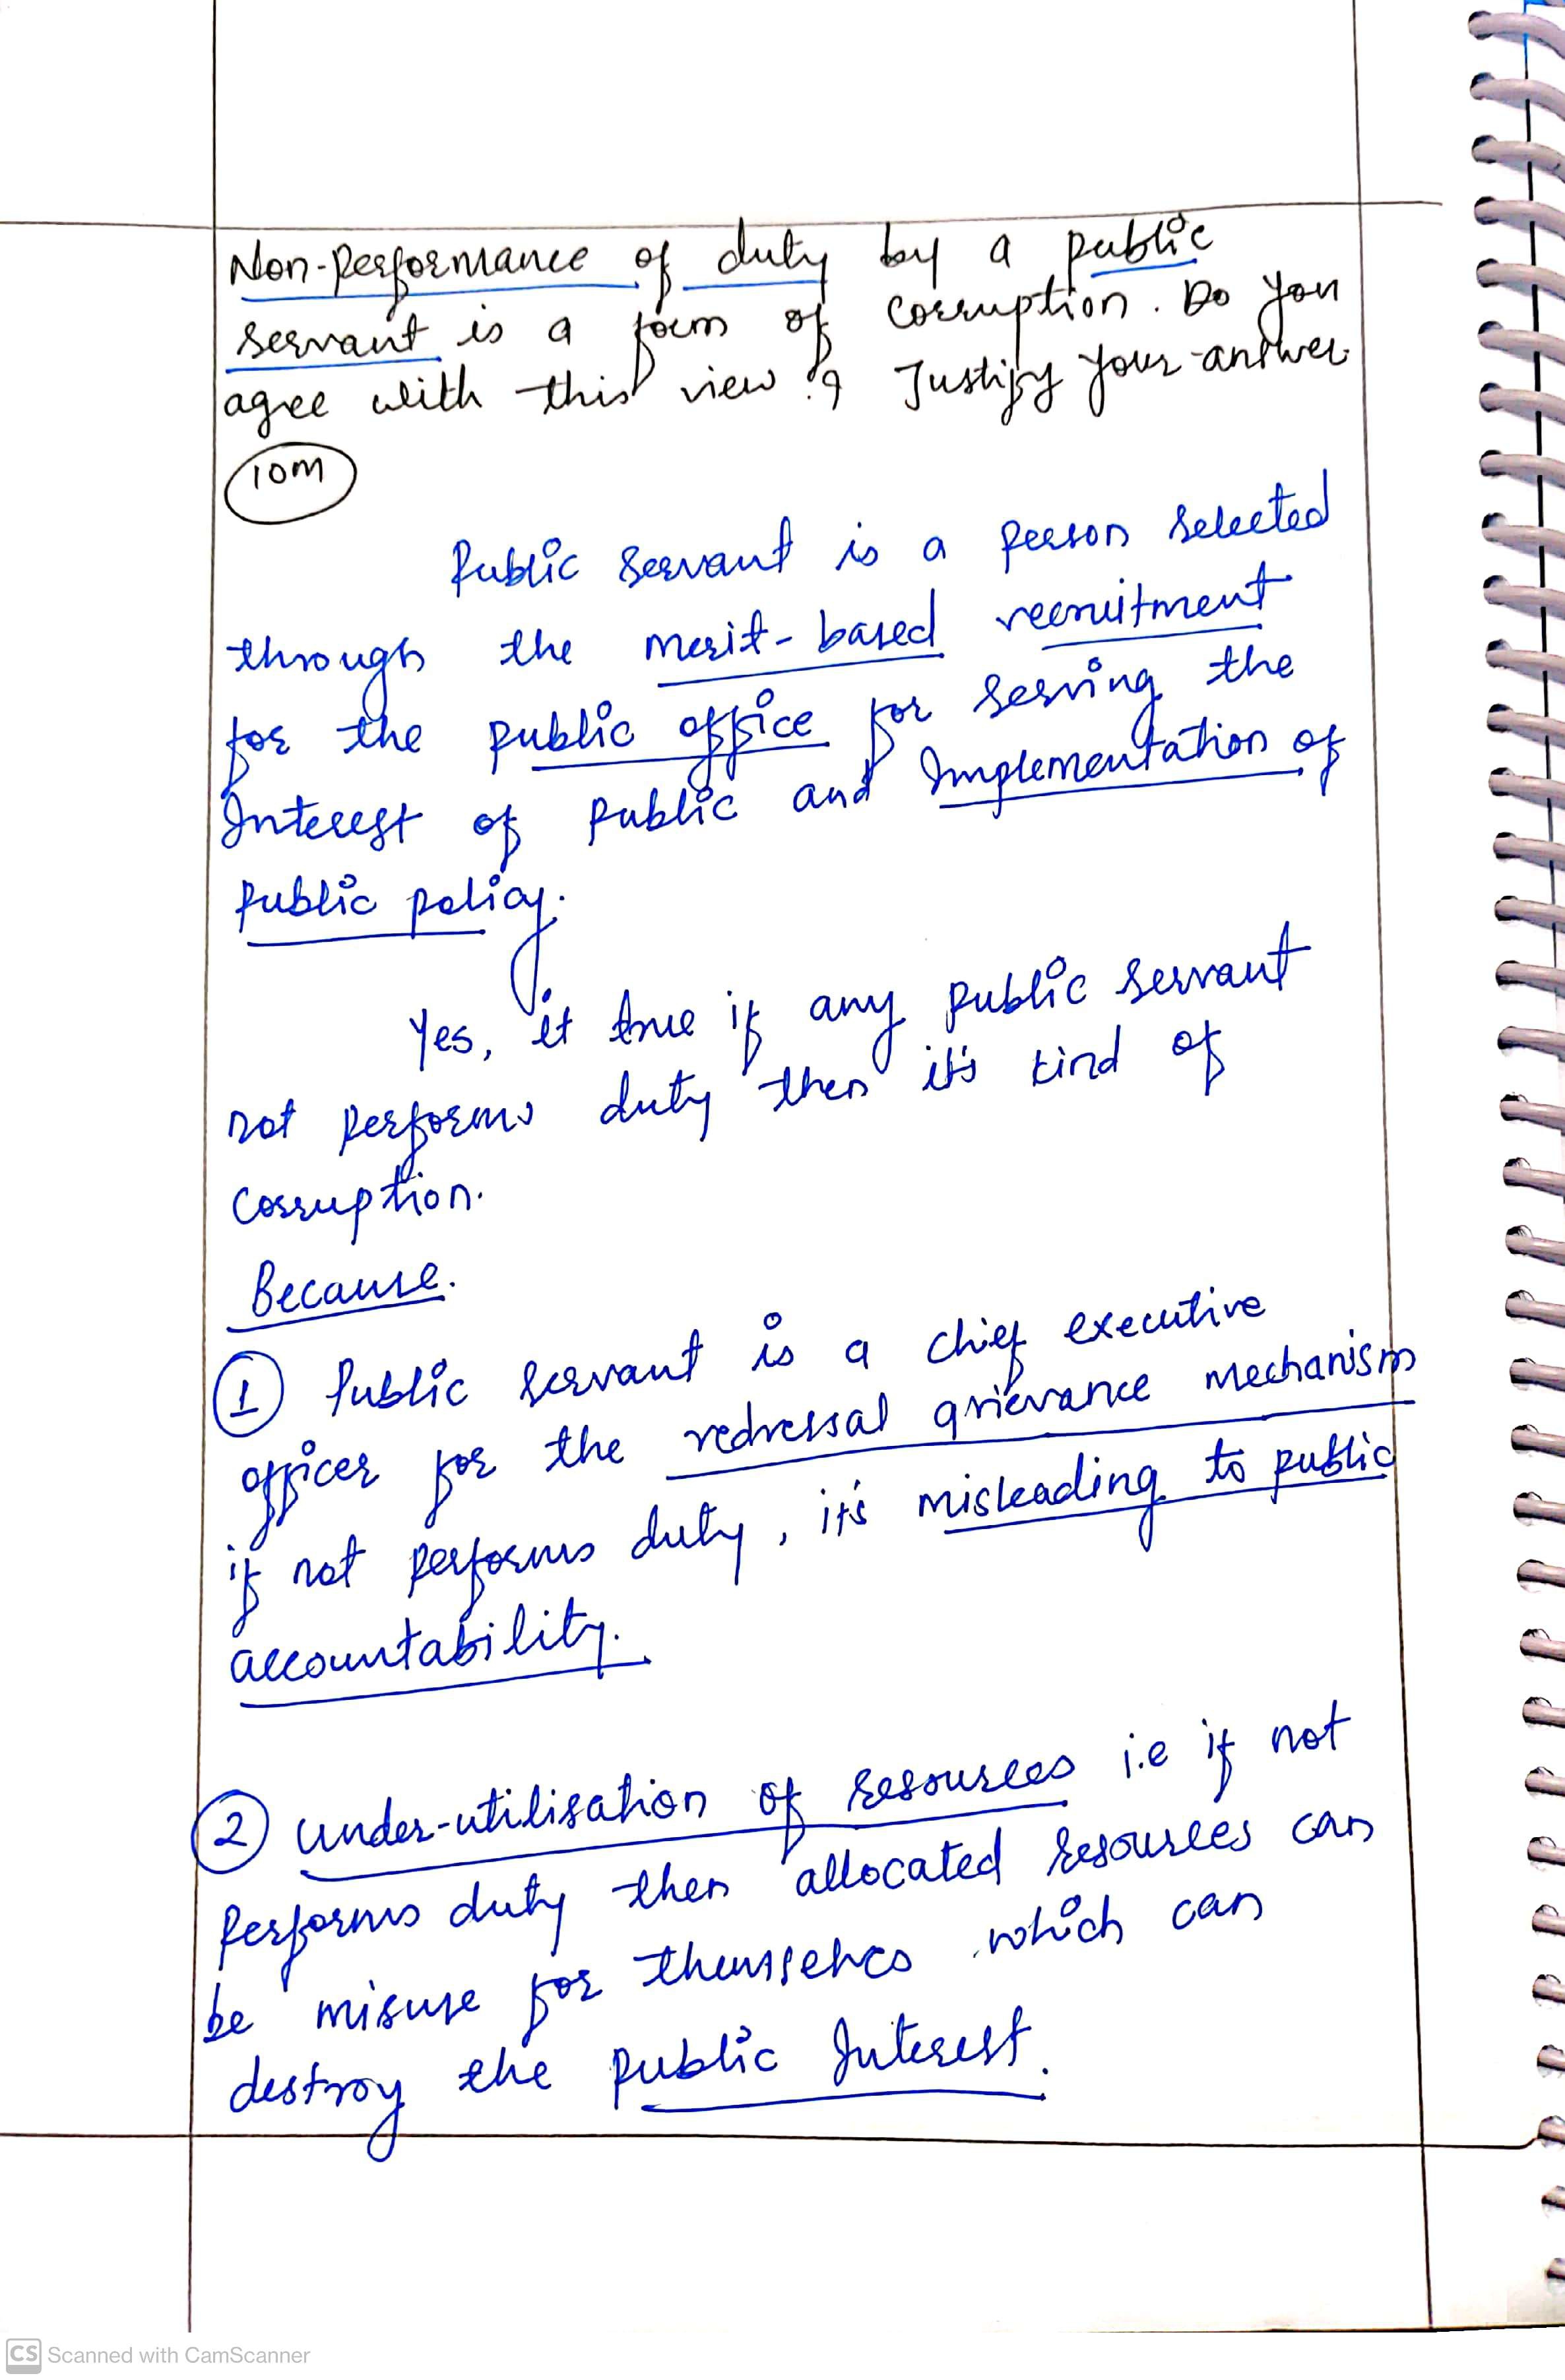 Non-Performance of duty by a public
servant is a form of corruption. Do you
agree with this view? Justify your answer.
10M
Public servant is a person selected
through the merit-based recruitment
for the public office for serving the
Interest of public and Implementation of
public policy.
Yes, it true if any public servant
not performs duty then it's kind of
corruption.
Because.
1 Public servant is a chief executive
officer for the redressal grievance mechanism
if not performs duty, it's misleading to public
accountability.
2 Under-utilisation of resources i.e if not
performs duty then allocated resources can
be misuse for themselves which can
destroy the public Interest.
CS Scanned with CamScanner